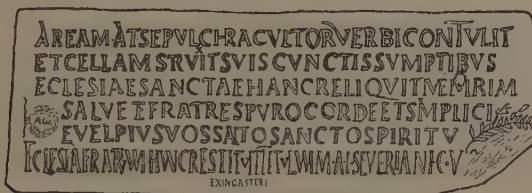 AREAM AT SEPVLCHRA CVLTOR VERBI CONTVLIT
ET CELLAM STRVIT SVIS CVNCTIS SVMPTIBVS
ECLESIAE SANCTAE HANC RELIQVIT MEMRIAM
SALVETE FRATRES PVRO CORDE ET SMPLICI
Aω
EVELPIVS VOS SATO SANCTO SPIRITV
ECLESIA FRATRVM HVNC RESTITVIT TITVLVM M·A·I·SEVERIANI·C·V
EXINGASTERI